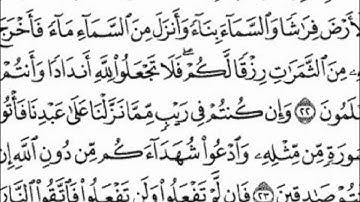 لْأَرْضَ فِرَٰشًا وَٱلسَّمَآءَ بِنَآءً وَأَنزَلَ مِنَ ٱلسَّمَآءِ مَآءً فَأَخْرَجَ
بِهِۦ مِنَ ٱلثَّمَرَٰتِ رِزْقًا لَّكُمْ ۖ فَلَا تَجْعَلُوا۟ لِلَّهِ أَندَادًا وَأَنتُمْ
تَعْلَمُونَ ٢٢ وَإِن كُنتُمْ فِى رَيْبٍ مِّمَّا نَزَّلْنَا عَلَىٰ عَبْدِنَا فَأْتُوا۟
بِسُورَةٍ مِّن مِّثْلِهِۦ وَٱدْعُوا۟ شُهَدَآءَكُم مِّن دُونِ ٱللَّهِ إِن
كُنتُمْ صَٰدِقِينَ ٢٣ فَإِن لَّمْ تَفْعَلُوا۟ وَلَن تَفْعَلُوا۟ فَٱتَّقُوا۟ ٱلنَّارَ